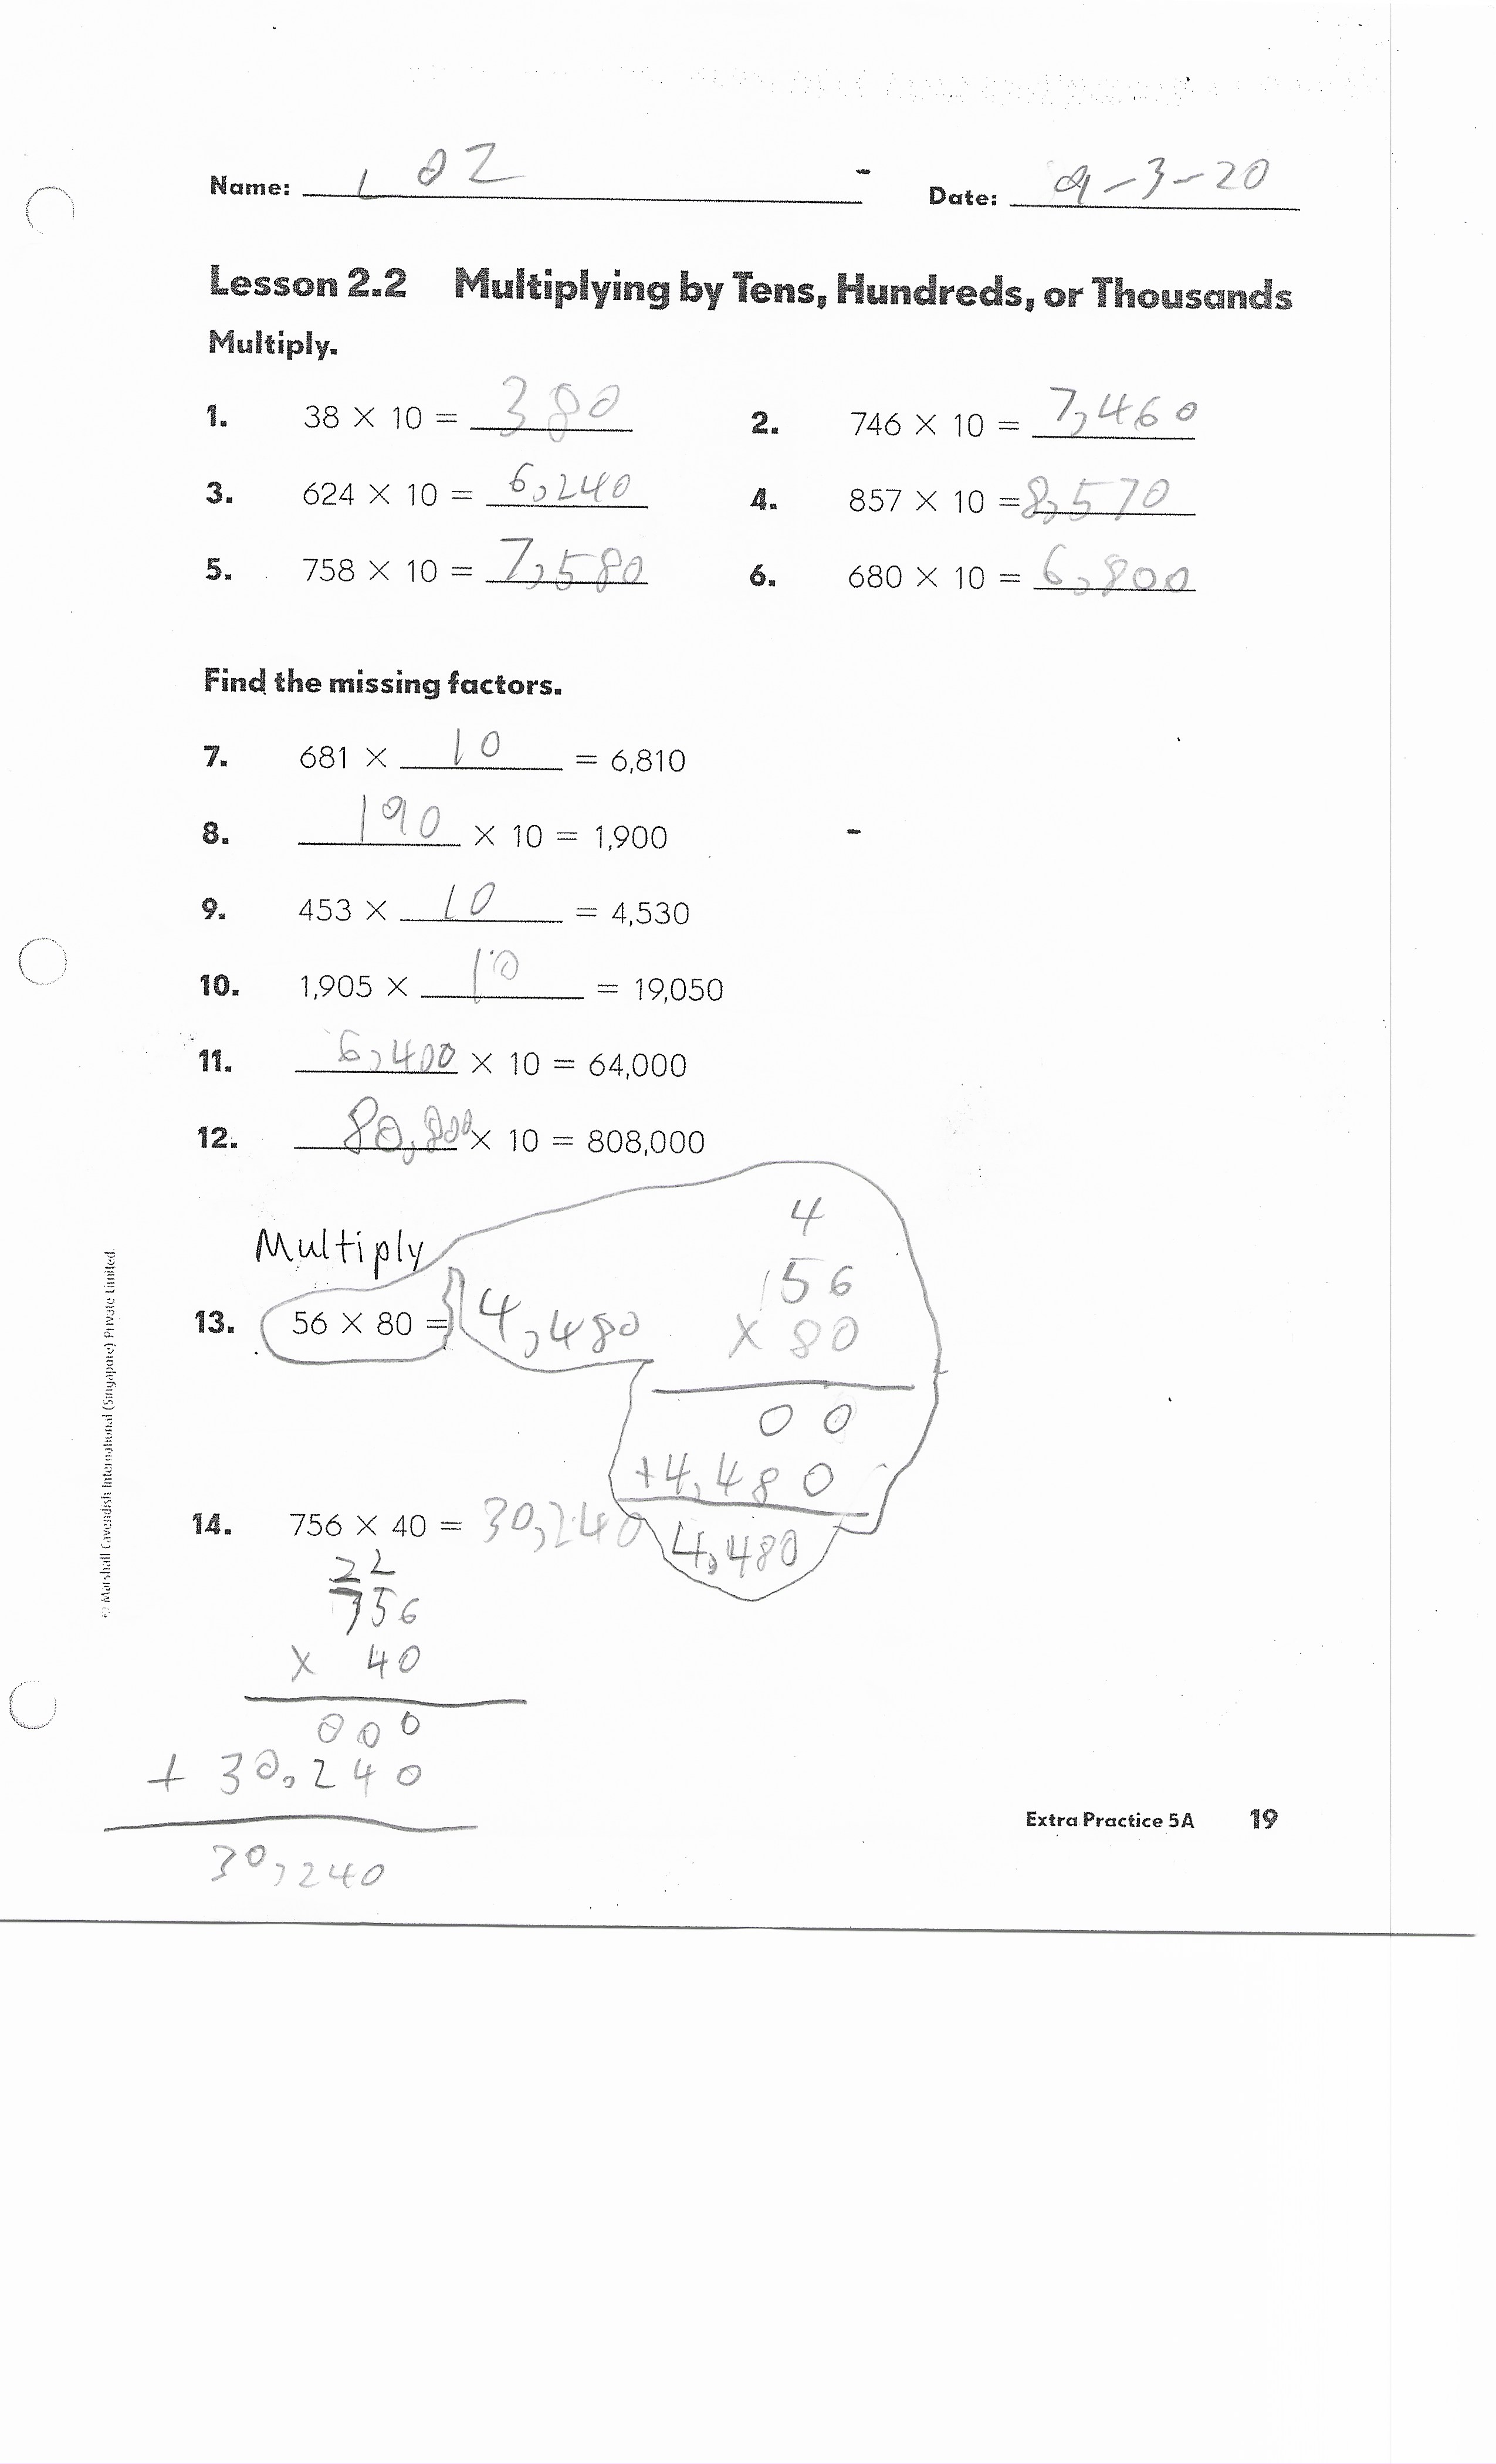 Name: Date: 9-3-20
Lesson 2.2 Multiplying by Tens, Hundreds, or Thousands
Multiply.
1. 38 × 10 = 380 2. 746 × 10 = 7,460
3. 624 × 10 = 6,240 4. 857 × 10 = 8,570
5. 758 × 10 = 7,580 6. 680 × 10 = 6,800
Find the missing factors.
7. 681 × 10 = 6,810
8. 190 × 10 = 1,900
9. 453 × 10 = 4,530
10. 1,905 × 10 = 19,050
11. 6,400 × 10 = 64,000
12. 80,800 × 10 = 808,000
Multiply
13. 56 × 80 = 4,480
4
56
× 80
00
+4,480
4,480
14. 756 × 40 = 30,240
22
756
× 40
000
+ 30,240
30,240
© Marshall Cavendish International (Singapore) Private Limited.
Extra Practice 5A 19